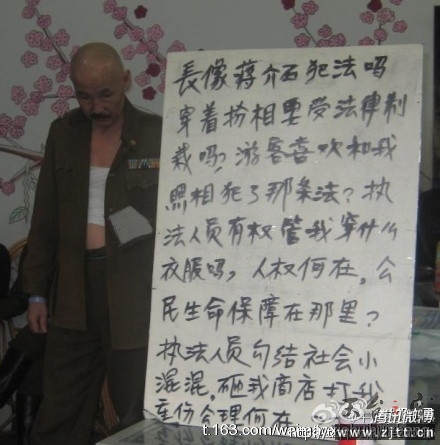 長像蒋介石犯法吗
穿着扮相要受法律制
裁吗？游客喜欢和我
照相犯了那条法？执
法人员有权管我穿什么
衣服吗，人权何在，公
民生命保障在那里？
执法人员勾结社会小
混混，砸我商店打我
合理何在
腾讯微博
http://www.zjtt.cn